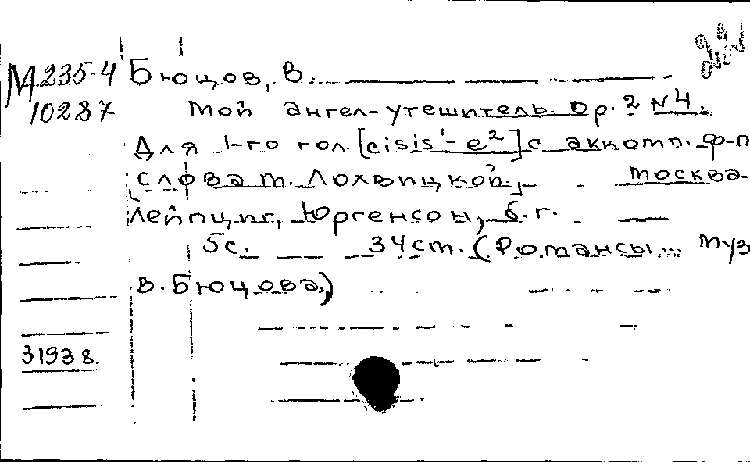 М 235-4 Бюцов, В.
10287 Мой ангел-утешитель. Op. 2 № 4.
Для 1-го гол [cisis¹-e²] с аккомп. ф-п
Слова М. Лохвицкой,
Москва-
Лейпциг, Юргенсон, б.г.
5с. 34см. (Романсы... муз
В. Бюцова.)
31938.